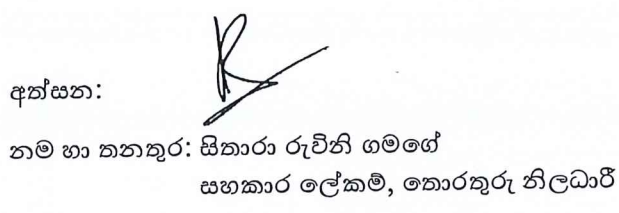 අත්සන:
නම හා තනතුර: සිතාරා රුවිනි ගමගේ
සහකාර ලේකම්, තොරතුරු නිලධාරී